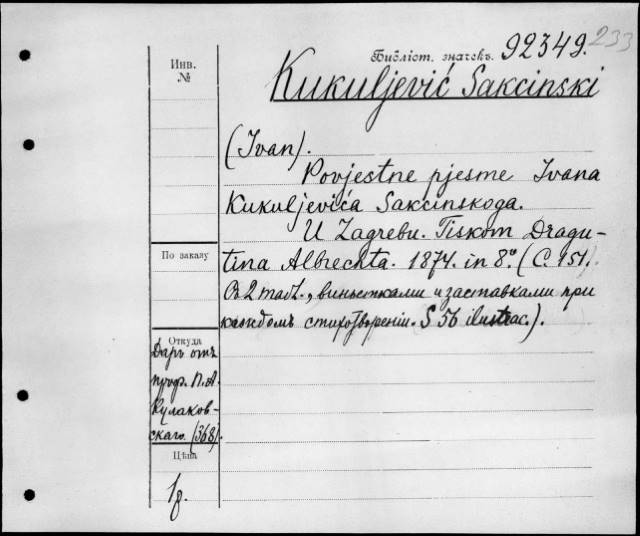 Библіот. значекъ. 92349. 233
Инв. №
Kukuljević Sakcinski
(Ivan).
Povjestne pjesme Ivana
Kukuljevića Sakcinskoga.
U Zagrebu. Tiskom Dragu-
tina Albrechta. 1874. in 8º. (C. 151.
Съ 2 табл., виньетками и заставками при
каждомъ стихотвореніи. S 56 ilustrac.).
По заказу
Откуда
Даръ отъ
проф. П. А.
Кулаков-
скаго. (368).
Цѣна
1 р.